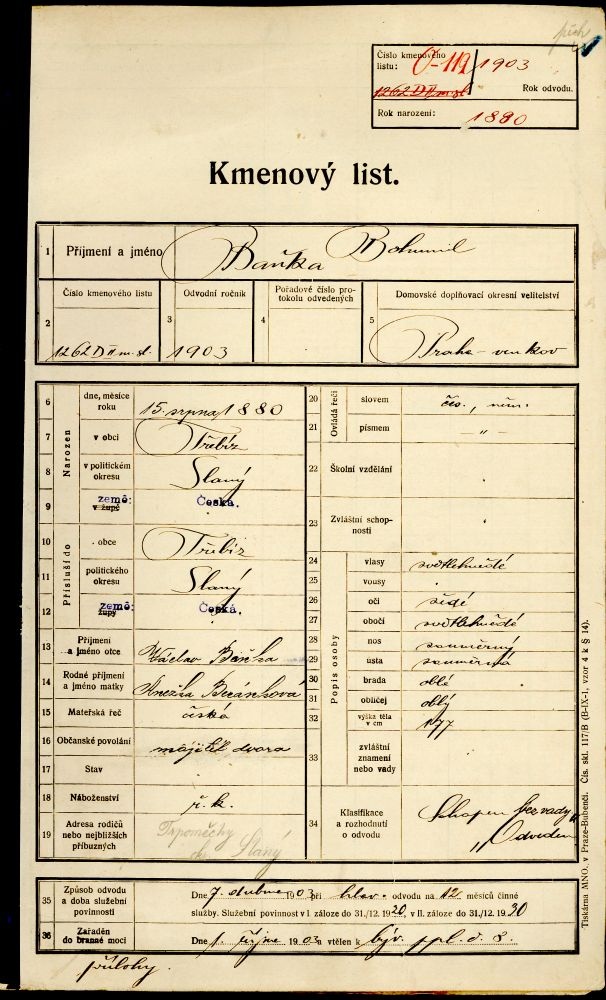 Číslo kmenového listu: O-119 / 1903
1262 D II m. sl.
Rok odvodu.
Rok narození: 1880
Kmenový list.
1 Příjmení a jméno Baňka Bohumil
Číslo kmenového listu
Odvodní ročník
Pořadové číslo protokolu odvedených
Domovské doplňovací okresní velitelství
2 1262 D II m. sl.
3 1903
4
5 Praha-venkov
6 Narozen dne, měsíce roku 15. srpna 1880
7 v obci Třebíz
8 v politickém okresu Slaný
9 v župě země: Česká.
10 Přísluší do obce Třebíz
11 politického okresu Slaný
12 župy země: Česká.
13 Příjmení a jméno otce Václav
14 Rodné příjmení a jméno matky Anežka Beránková
15 Mateřská řeč česká
16 Občanské povolání majitel dvora
17 Stav
18 Náboženství ř. k.
19 Adresa rodičů nebo nejbližších příbuzných Trpoměchy
Slaný
20 Ovládá řeči slovem čes., něm.
21 písmem „ -
22 Školní vzdělání
23 Zvláštní schopnosti
Popis osoby
24 vlasy světlehnědé
25 vousy
26 oči šedé
27 obočí světlehnědé
28 nos souměrný
29 ústa souměrná
30 brada oblá
31 obličej oblý
32 výška těla v cm 177
33 zvláštní znamení nebo vady
34 Klasifikace a rozhodnutí o odvodu Schopen bez vady
„Odveden"
35 Způsob odvodu a doba služební povinnosti
Dne 7. dubna 1903 při hlav. odvodu na 12 měsíců činné
služby. Služební povinnost v I záloze do 31./12. 1920, v II. záloze do 31./12. 1930
36 Zařaděn do branné moci
Dne 1. října 1903 a vtělen k býv. ppl. č. 8.
přílohy.
Tiskárna MNO. v Praze-Bubenči. Čís. skl. 117/B (B-IX-1, vzor 4 k § 14).